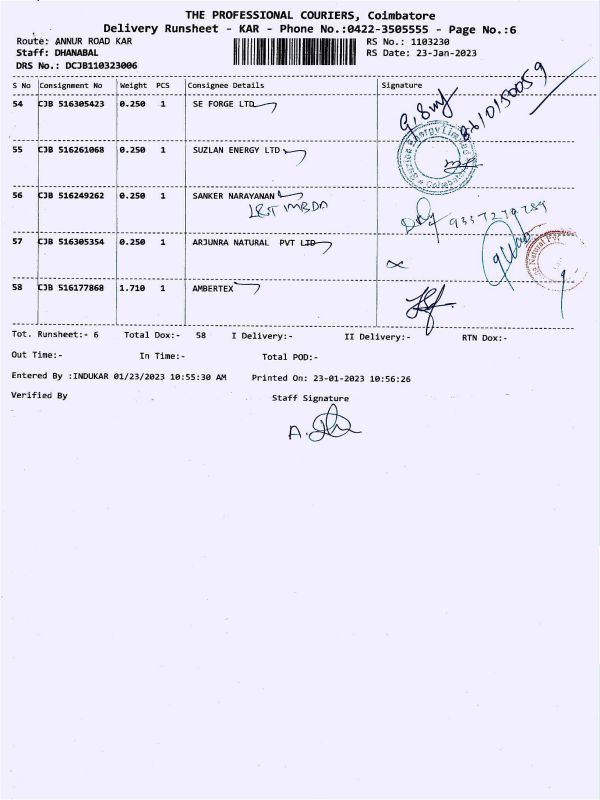 THE PROFESSIONAL COURIERS, Coimbatore
Delivery Runsheet - KAR - Phone No.:0422-3505555 - Page No.:6
Route: ANNUR ROAD KAR RS No.: 1103230
Staff: DHANABAL RS Date: 23-Jan-2023
DRS No.: DCJB110323006
S No Consignment No Weight PCS Consignee Details Signature
54 CJB 516305423 0.250 1 SE FORGE LTD
8610150059
55 CJB 516261068 0.250 1 SUZLAN ENERGY LTD
Suzlon Energy Limited
56 CJB 516249262 0.250 1 SANKER NARAYANAN
L&T MBDA
57 CJB 516305354 0.250 1 ARJUNRA NATURAL PVT LTD
58 CJB 516177868 1.710 1 AMBERTEX
Tot. Runsheet:- 6 Total Dox:- 58 I Delivery:- II Delivery:- RTN Dox:-
Out Time:- In Time:- Total POD:-
Entered By :INDUKAR 01/23/2023 10:55:30 AM Printed On: 23-01-2023 10:56:26
Verified By Staff Signature